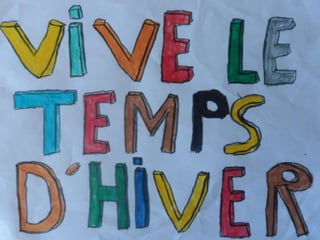 ViVE LE
TEMPS
D'HiVER